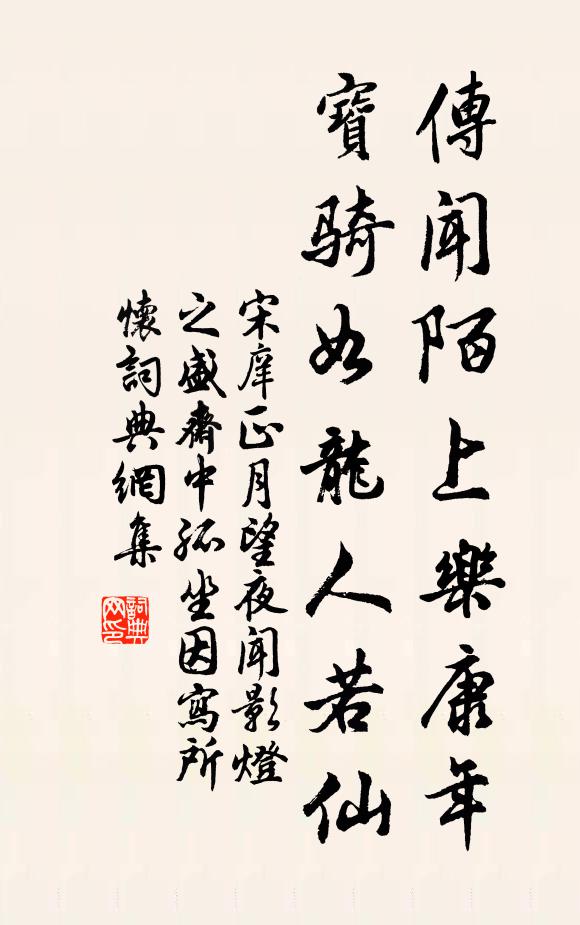 傳聞陌上樂康年
寶騎如龍人若仙
宋庠正月望夜聞影燈
之盛齋中孤坐因寫所
懷詞典網集
詞典
网印